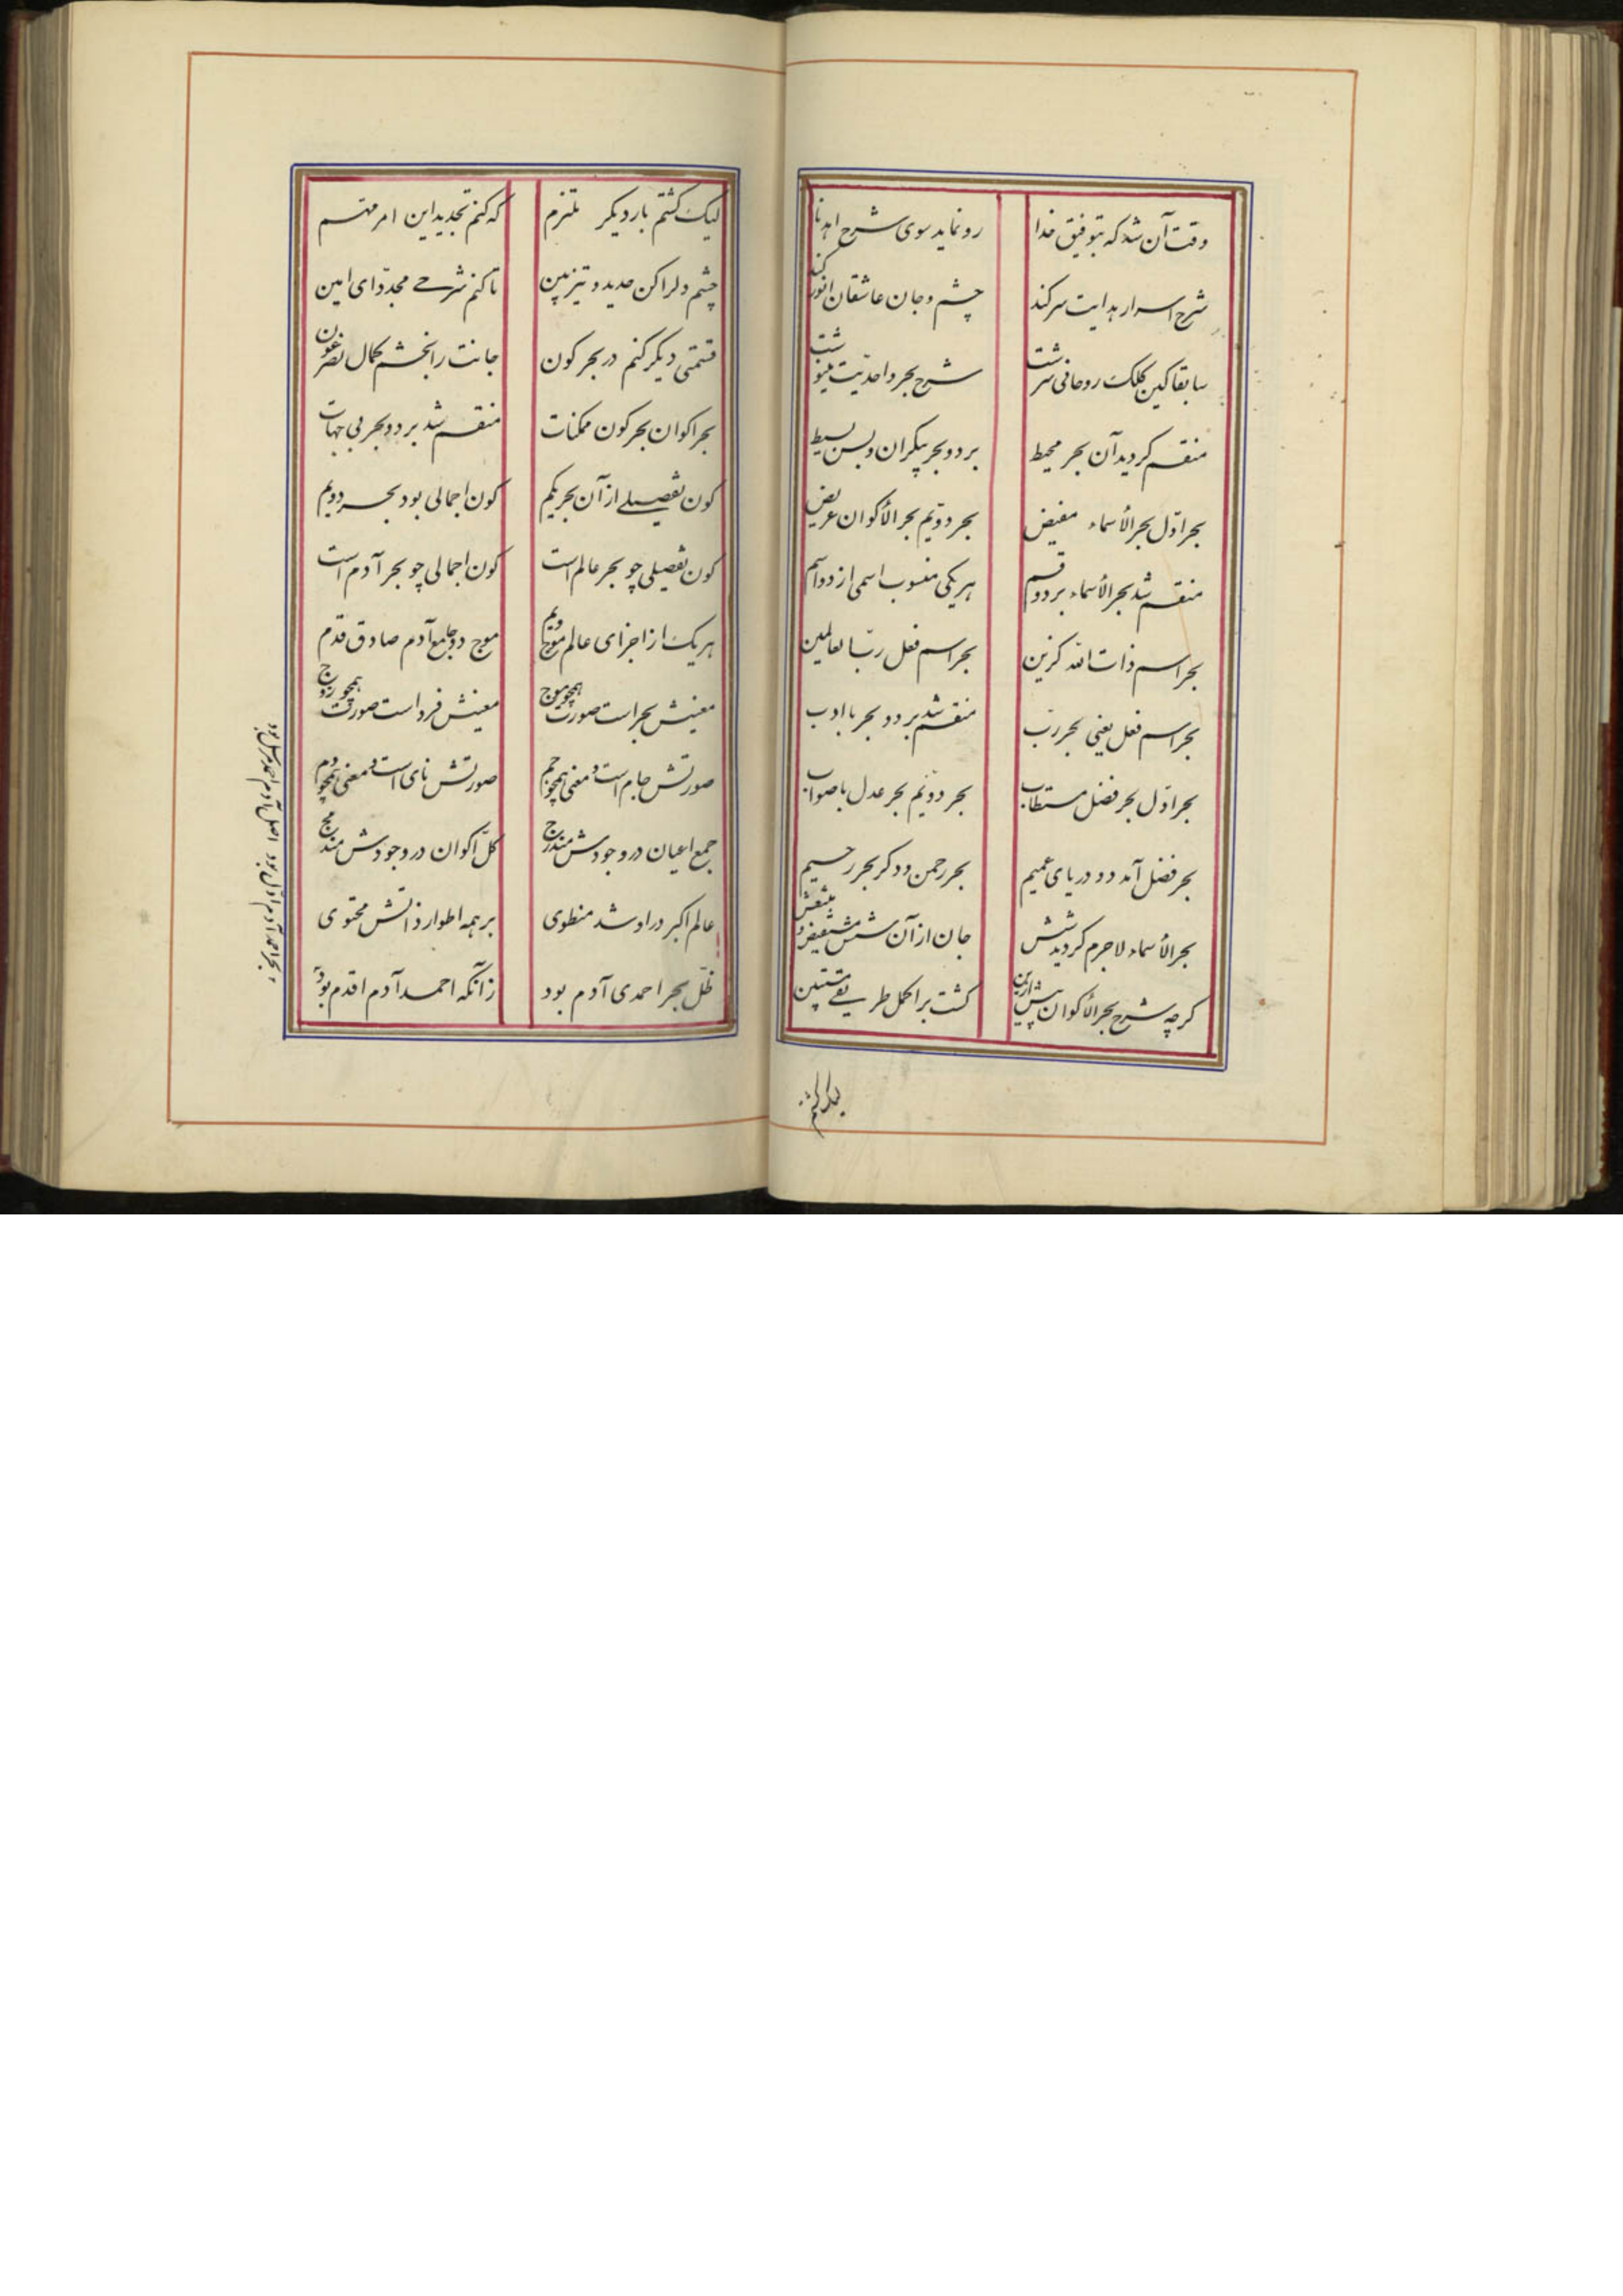 وقت آن شد که بتوفیق خدا رو نماید سوی شرح اهدنا
شرح اسرار هدایت سر کند چشم و جان عاشقان انور کند
سابقا کین کلک روحانی سرشت شرح بحر واحدیت مینوشت
منقسم کردید آن بحر محیط بر دو بحر بیکران و بس بسیط
بحر اوّل بحر الأسماء مفیض بحر دویّم بحر الأکوان عریض
منقسم شد بحر الأسماء بر دو قسم هر یکی منسوب اسمی از دو اسم
بحر اسم ذات الله کزین بحر اسم فعل ربّ العالمین
بحر اسم فعل یعنی بحر ربّ منقسم شد بر دو بحر با ادب
بحر اوّل بحر فضل مستطاب بحر دویّم بحر عدل با صواب
بحر فضل آمد دو دریای عمیم بحر رحمن و دکر بحر رحیم
بحر الأسماء لاجرم کردید شش جان از آن شش مستفیض و منتعش
کرچه شرح بحر الأکوان پیش ازین کشت بر اکمل طریقی مستبین
لیک کشتم
لیک کشتم بار دیکر ملتزم که کنم تجدید این امر مهتم
چشم دلرا کن حدید و تیزبین تا کنم شرحی مجدّد ای امین
قسمتی دیکر کنم در بحر کون جانت را بخشم کمال نصر و عون
بحر اکوان بحر کون ممکنات منقسم شد بر دو بحر بی جهات
کون تفصیلی از آن بحر یکم کون اجمالی بود بحر دویم
کون تفصیلی چو بحر عالم است کون اجمالی چو بحر آدم است
هر یک از اجزای عالم موج ویم موج و جامع آدم صادق قدم
معنیش بحر است صورت همچو موج معنیش فرد است صورت همچو زوج
صورتش جام است و معنی همچو جم صورتش نای است و معنی همچو دم
جمع اعیان در وجودش مندرج کلّ اکوان در وجودش مندمج
عالم اکبر در او شد منطوی بر همه اطوار ذاتش محتوی
ظلّ بحر احمدی آدم بود زآنکه احمد آدم اقدم بود
بحر احمد آدم اوّل بود اصل آدم احمد مرسل بود